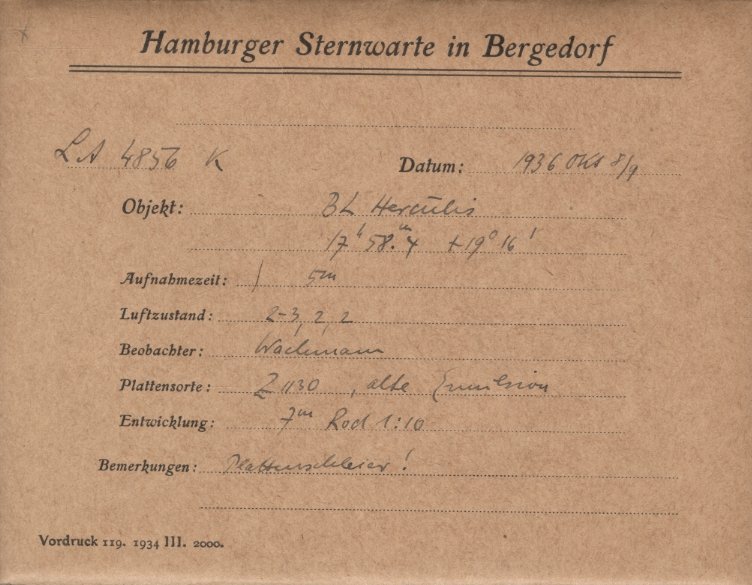 Hamburger Sternwarte in Bergedorf
LA 4856 K Datum: 1936 Okt 8/9
Objekt: BL Herculis
17h 58.m4 +19° 16'
Aufnahmezeit: 5m
Luftzustand: 2-3, 2, 2
Beobachter: Wachmann
Plattensorte: Z 1130, alte Emulsion
Entwicklung: 7m Rod 1:10
Bemerkungen: Plattenschleier!
Vordruck 119. 1934 III. 2000.